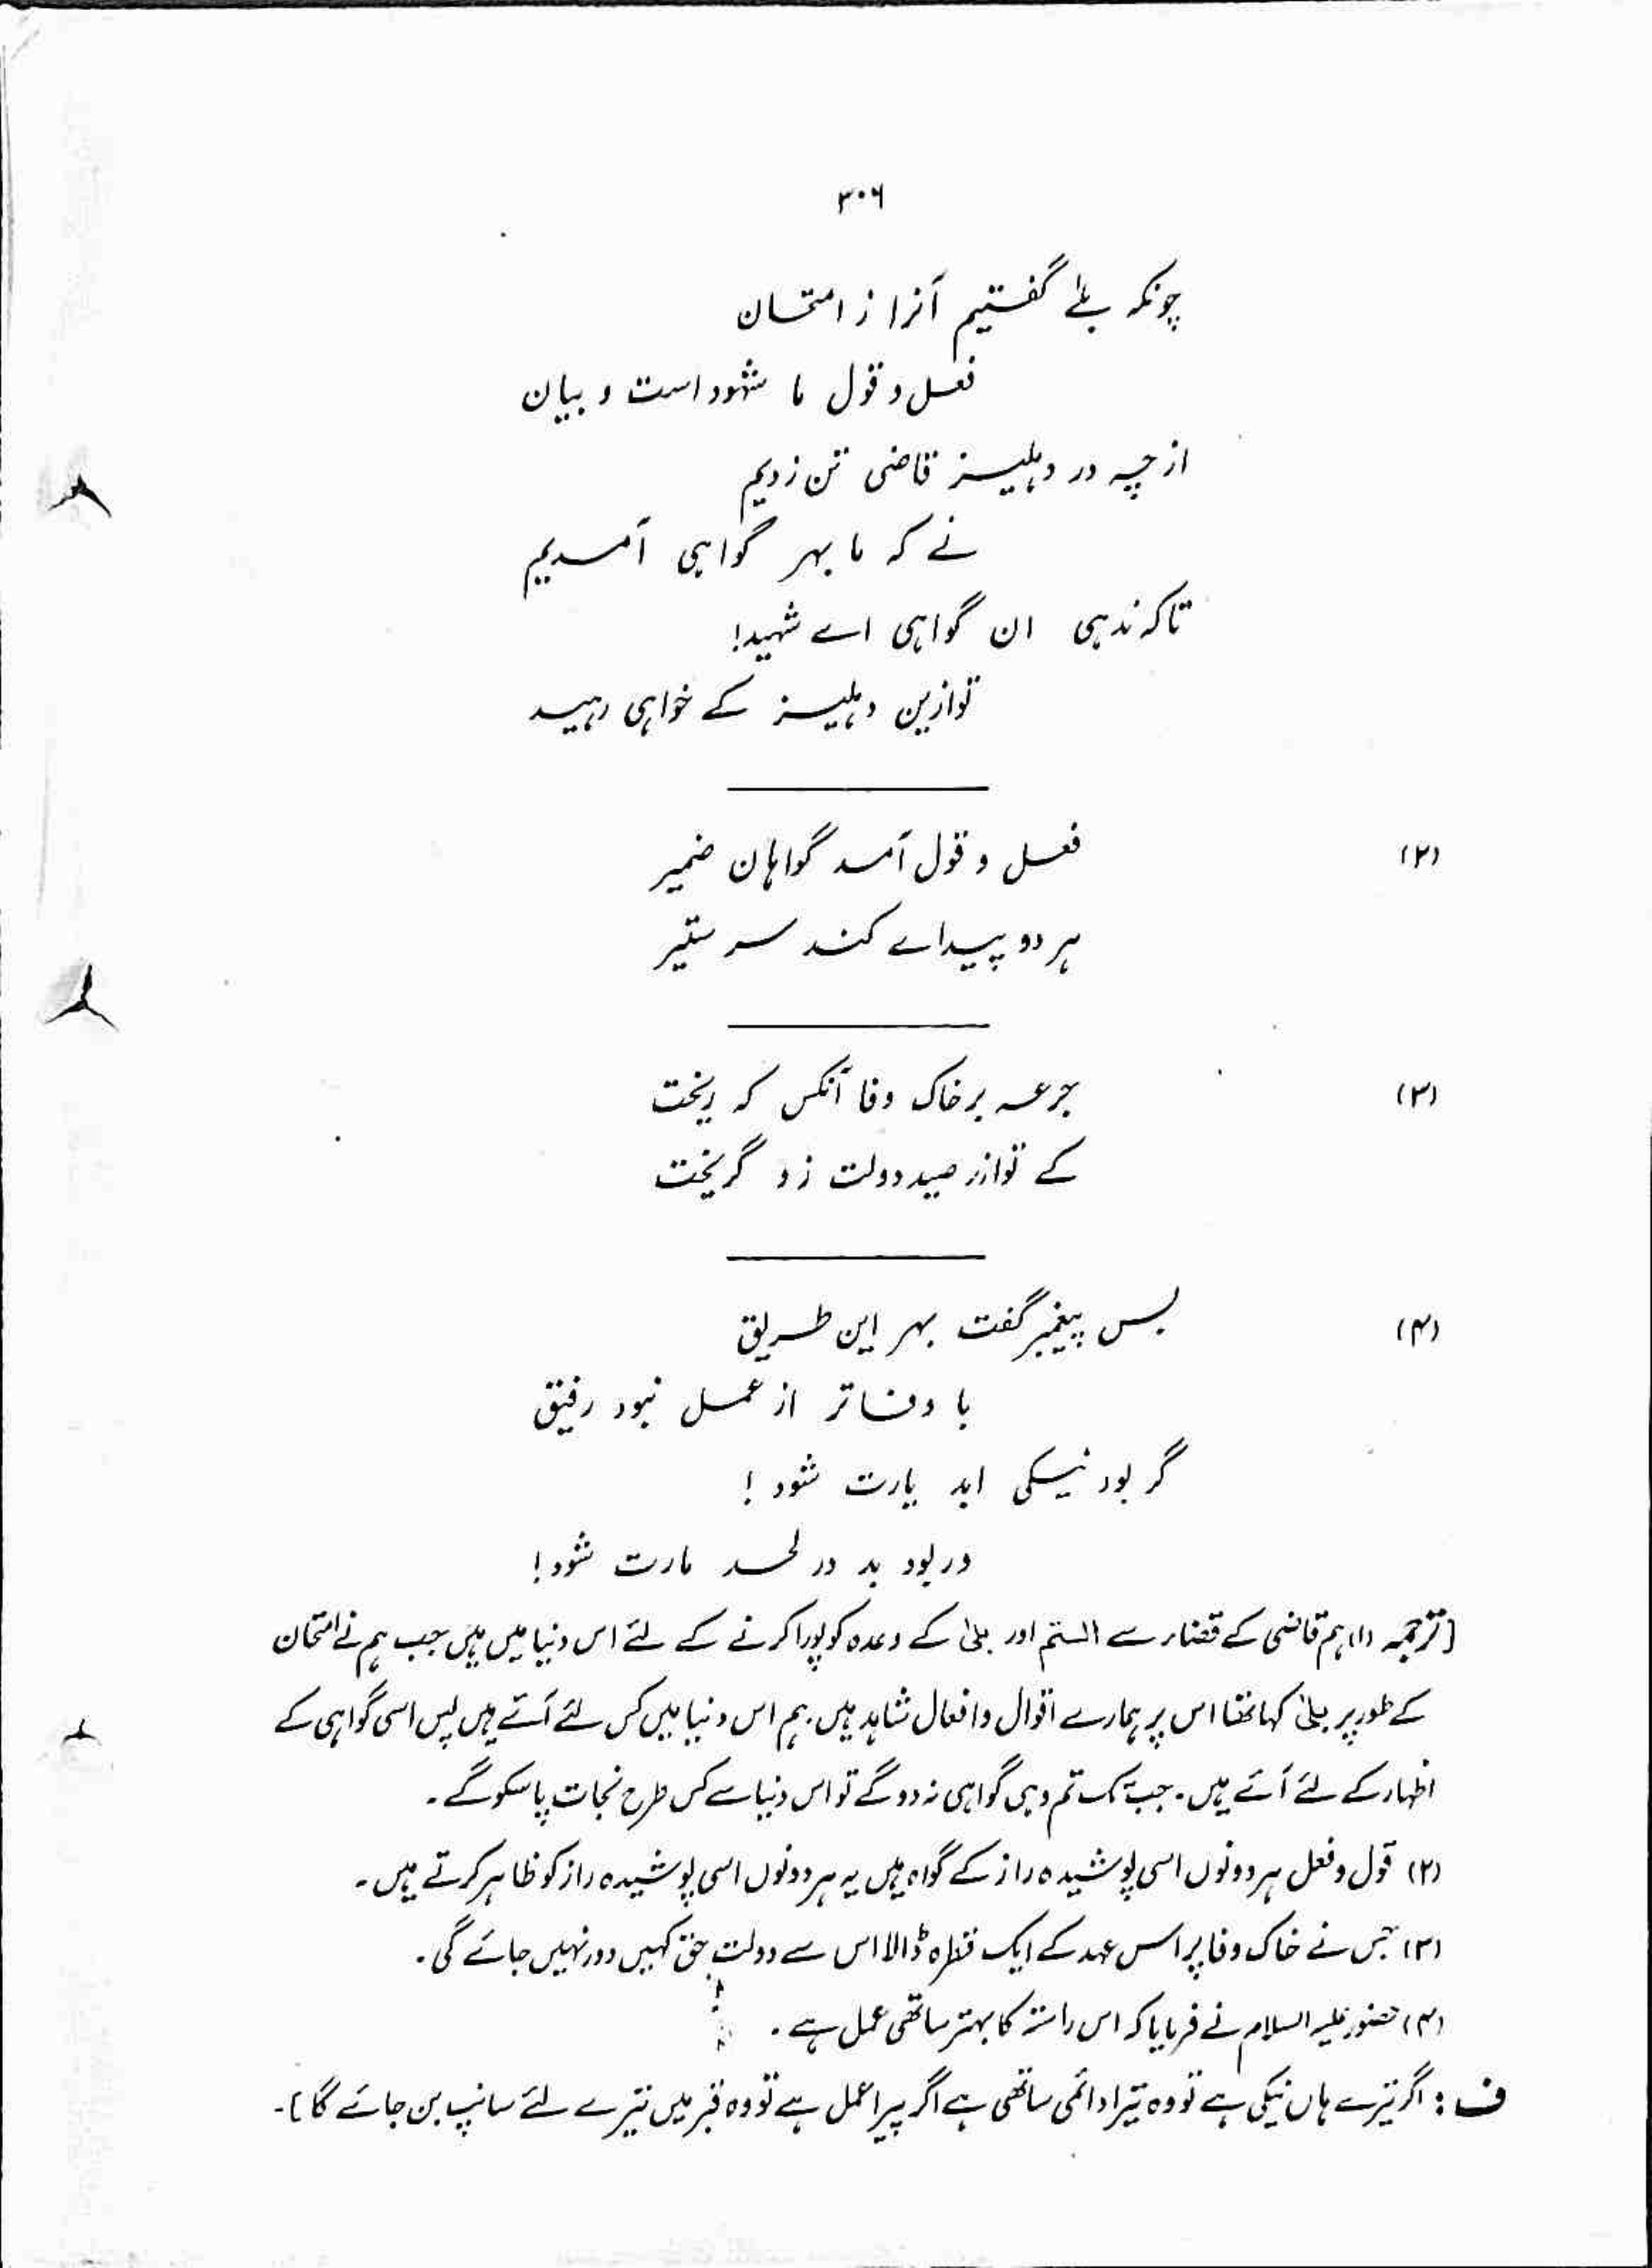 ۳۰۶
چونکہ بلےٰ گفتیم آنرا ز امتحان
فعل و قول ما شہود است و بیان
از چہ در دہلیز قاضی تن زدیم
نے کہ ما بہر گواہی آمدیم
تا کہ ندہی ان گواہی اے شہید!
تو ازین دہلیز کے خواہی رہید
(۲) فعل و قول آمد گواہان ضمیر
ہر دو پیداے کند سر ستیر
(۳) جرعہ بر خاک وفا آنکس کہ ریخت
کے تواند صید دولت زد گریخت
(۴) بس پیغمبر گفت بہر این طریق
با وفا تر از عمل نبود رفیق
گر بود نیکی ابد یارت شود !
در بود بد در لحد مارت شود!
[ترجمہ (۱) ہم قاضی کے قضاء سے الستم اور بلیٰ کے وعدہ کو پورا کرنے کے لئے اس دنیا میں ہیں جب ہم نے امتحان
کے طور پر بلیٰ کہا تھا اس پر ہمارے اقوال و افعال شاہد ہیں۔ ہم اس دنیا میں کس لئے آتے ہیں پس اسی گواہی کے
اظہار کے لئے آئے ہیں۔ جب تک تم وہی گواہی نہ دو گے تو اس دنیا سے کس طرح نجات پا سکو گے۔
(۲) قول و فعل ہر دونوں اسی پوشیدہ راز کے گواہ ہیں یہ ہر دونوں اسی پوشیدہ راز کو ظاہر کرتے ہیں۔
(۳) جس نے خاک وفا پر اس عہد کے ایک قطرہ ڈالا اس سے دولت حق کہیں دور نہیں جائے گی۔
(۴) حضور علیہ السلام نے فرمایا کہ اس راستہ کا بہتر ساتھی عمل ہے۔
ف : اگر تیرے ہاں نیکی ہے تو وہ تیرا دائمی ساتھی ہے اگر پیرا عمل ہے تو وہ قبر میں تیرے لئے سانپ بن جائے گا]۔